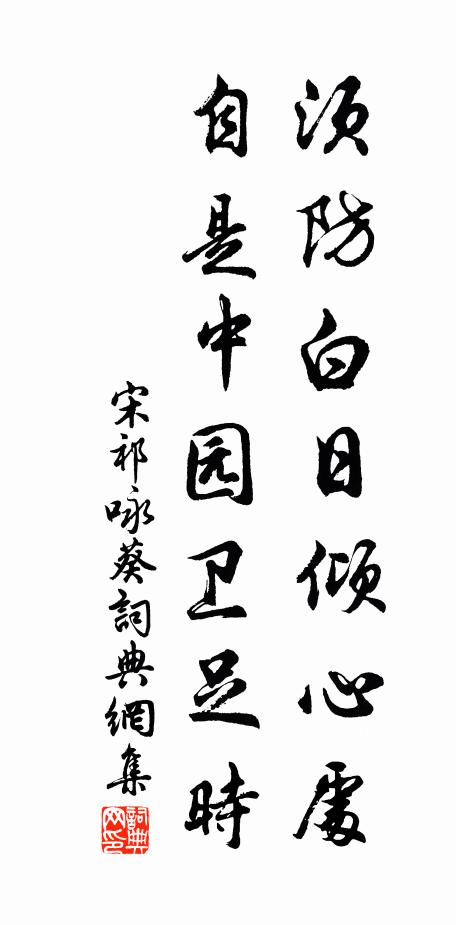 须防白日倾心處
自是中园卫足時
宋祁咏葵詞典網集
詞典网印